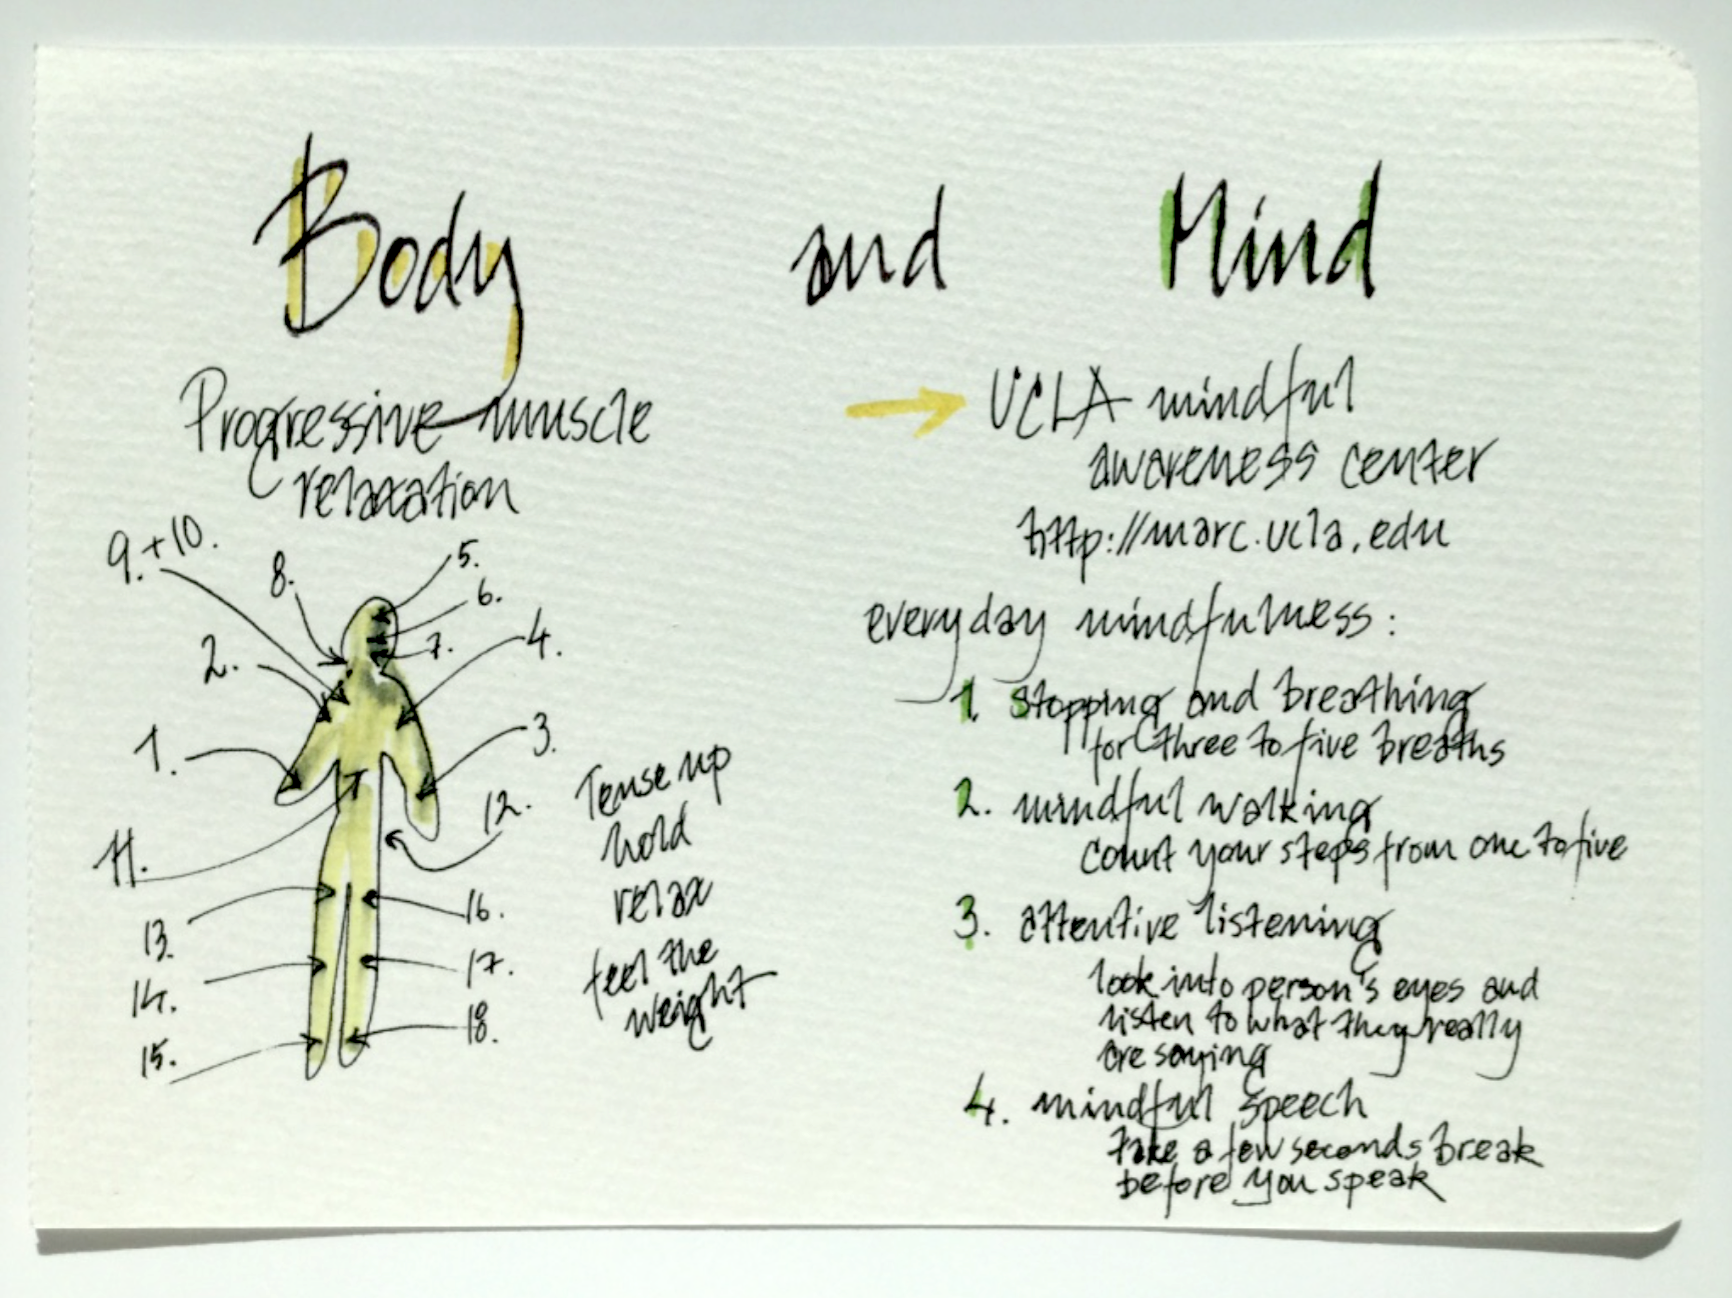 Body and Mind
Progressive muscle
relaxation
9.+10.
8.
5.
6.
2.
7.
4.
1.
3.
12.
11.
13.
16.
14.
17.
15.
18.
Tense up
hold
relax
feel the
weight
→ UCLA mindful
awareness center
http://marc.ucla.edu
everyday mindfulness:
1. stopping and breathing
for three to five breaths
2. mindful walking
count your steps from one to five
3. attentive listening
look into person's eyes and
listen to what they really
are saying
4. mindful speech
take a few seconds break
before you speak